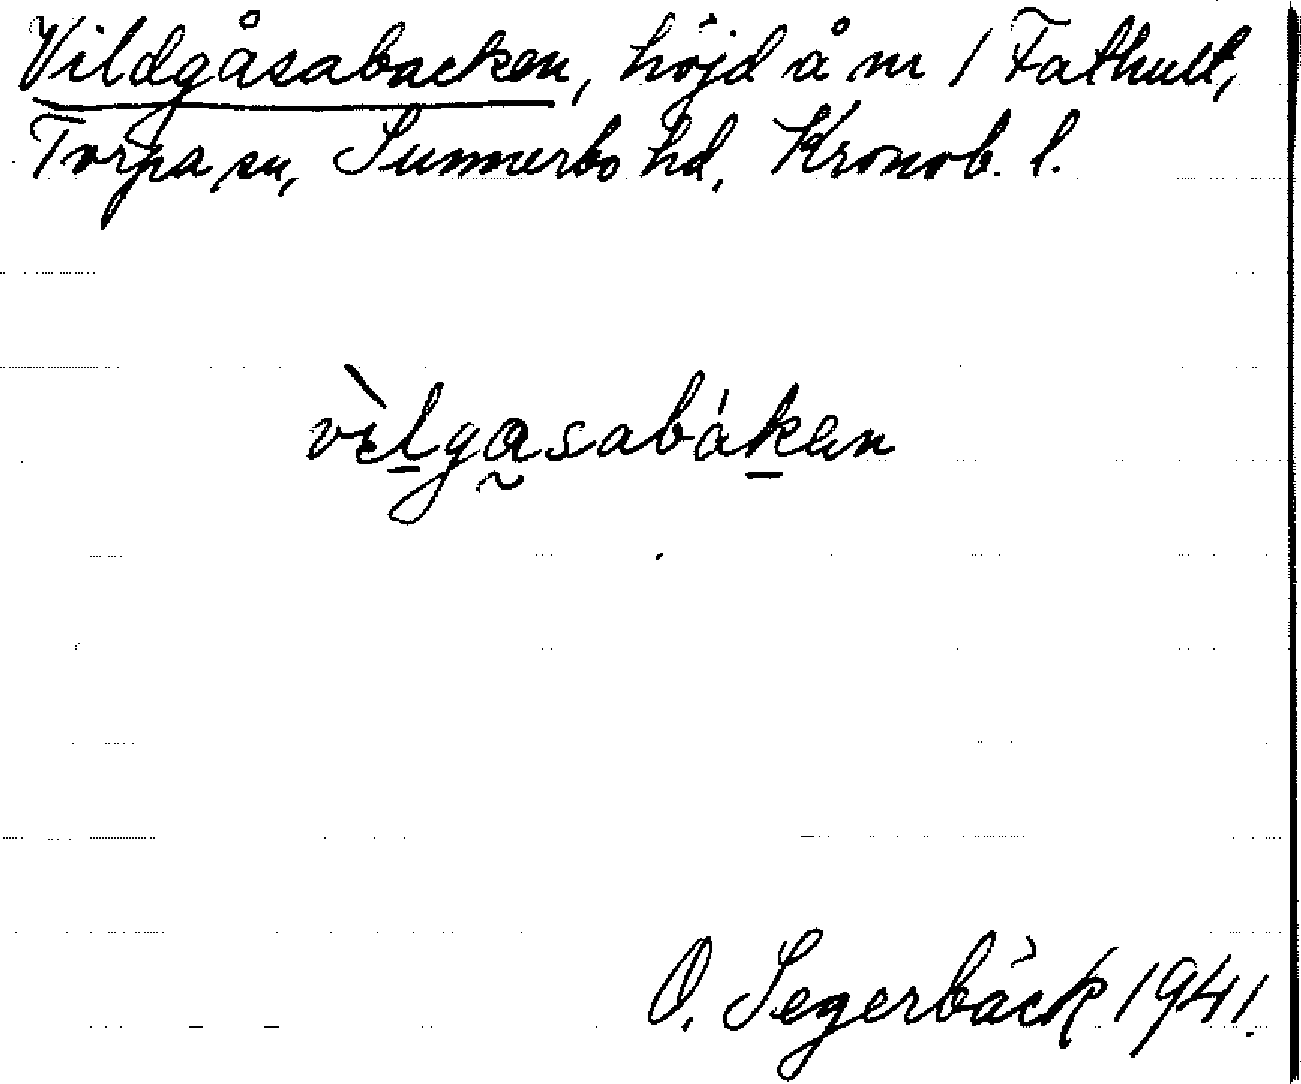 Vildgåsabacken, höjd å nr 1 Fathult,
Torpa sn, Sunnerbo hd, Kronob. l.
vìlgasabákan
O. Segerbäck 1941.